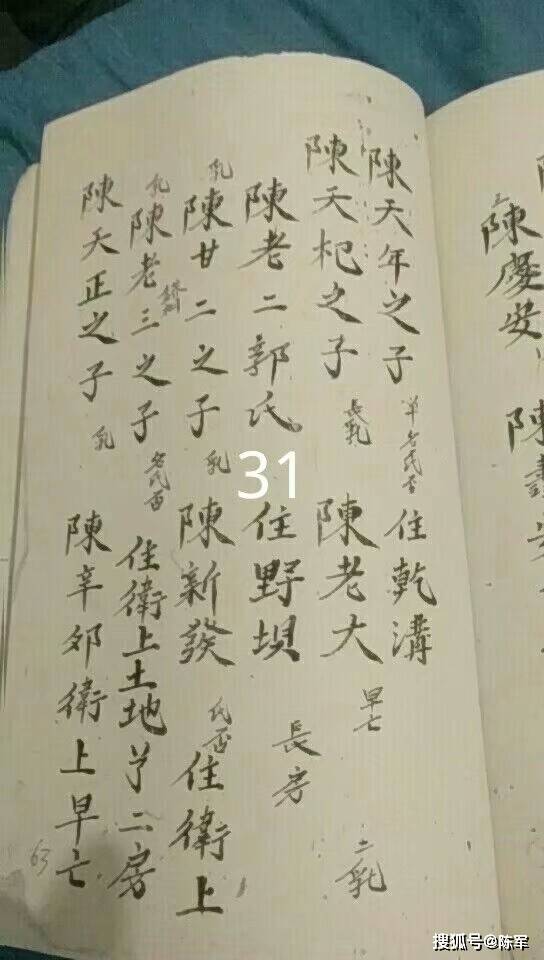 陳慶安
陳天年之子 单名氏否 住乾溝
陳天杞之子 長乳 陳老大 早亡 二乳
陳老二郭氏 住野坝 長房
乳 陳廿二之子 乳 陳新發 氏否 住衛上
乳 陳老三之子 名氏否 住衛上土地丫二房
陳天正之子 乳 陳辛郊衛上早亡
63
31
搜狐号@陈军